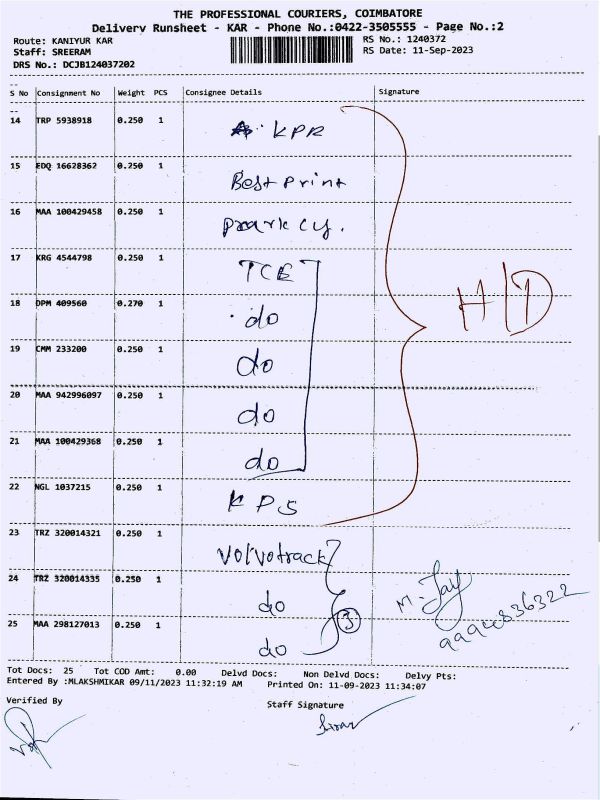 THE PROFESSIONAL COURIERS, COIMBATORE
Delivery Runsheet - KAR - Phone No.:0422-3505555 - Page No.:2
Route: KANIYUR KAR RS No.: 1240372
Staff: SREERAM RS Date: 11-Sep-2023
DRS No.: DCJB124037202
S No Consignment No Weight PCS Consignee Details Signature
14 TRP 5938918 0.250 1 KPR
15 EDQ 16628362 0.250 1 Best print
16 MAA 100429458 0.250 1
17 KRG 4544798 0.250 1 TCE
18 DPM 409560 0.270 1 do
H/D
19 CMM 233200 0.250 1 do
20 MAA 942996097 0.250 1 do
21 MAA 100429368 0.250 1 do
22 NGL 1037215 0.250 1 KPS
23 TRZ 320014321 0.250 1 Volvotrack
24 TRZ 320014335 0.250 1 do
3 M. Jay
25 MAA 298127013 0.250 1 do
Tot Docs: 25 Tot COD Amt: 0.00 Delvd Docs: Non Delvd Docs: Delvy Pts:
Entered By :MLAKSHMIKAR 09/11/2023 11:32:19 AM Printed On: 11-09-2023 11:34:07
Verified By Staff Signature